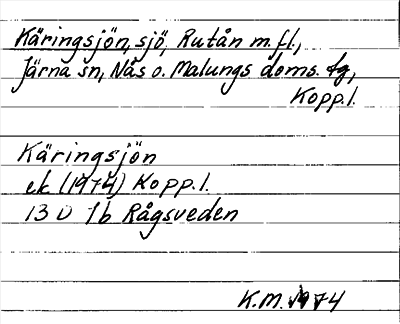 Käringsjön, sjö, Rutån m.fl.,
Järna sn, Nås o. Malungs doms. tg,
Kopp.l.
Käringsjön
ek (1974) Kopp.l.
13 D 1b Rågsveden
K.M. 1974